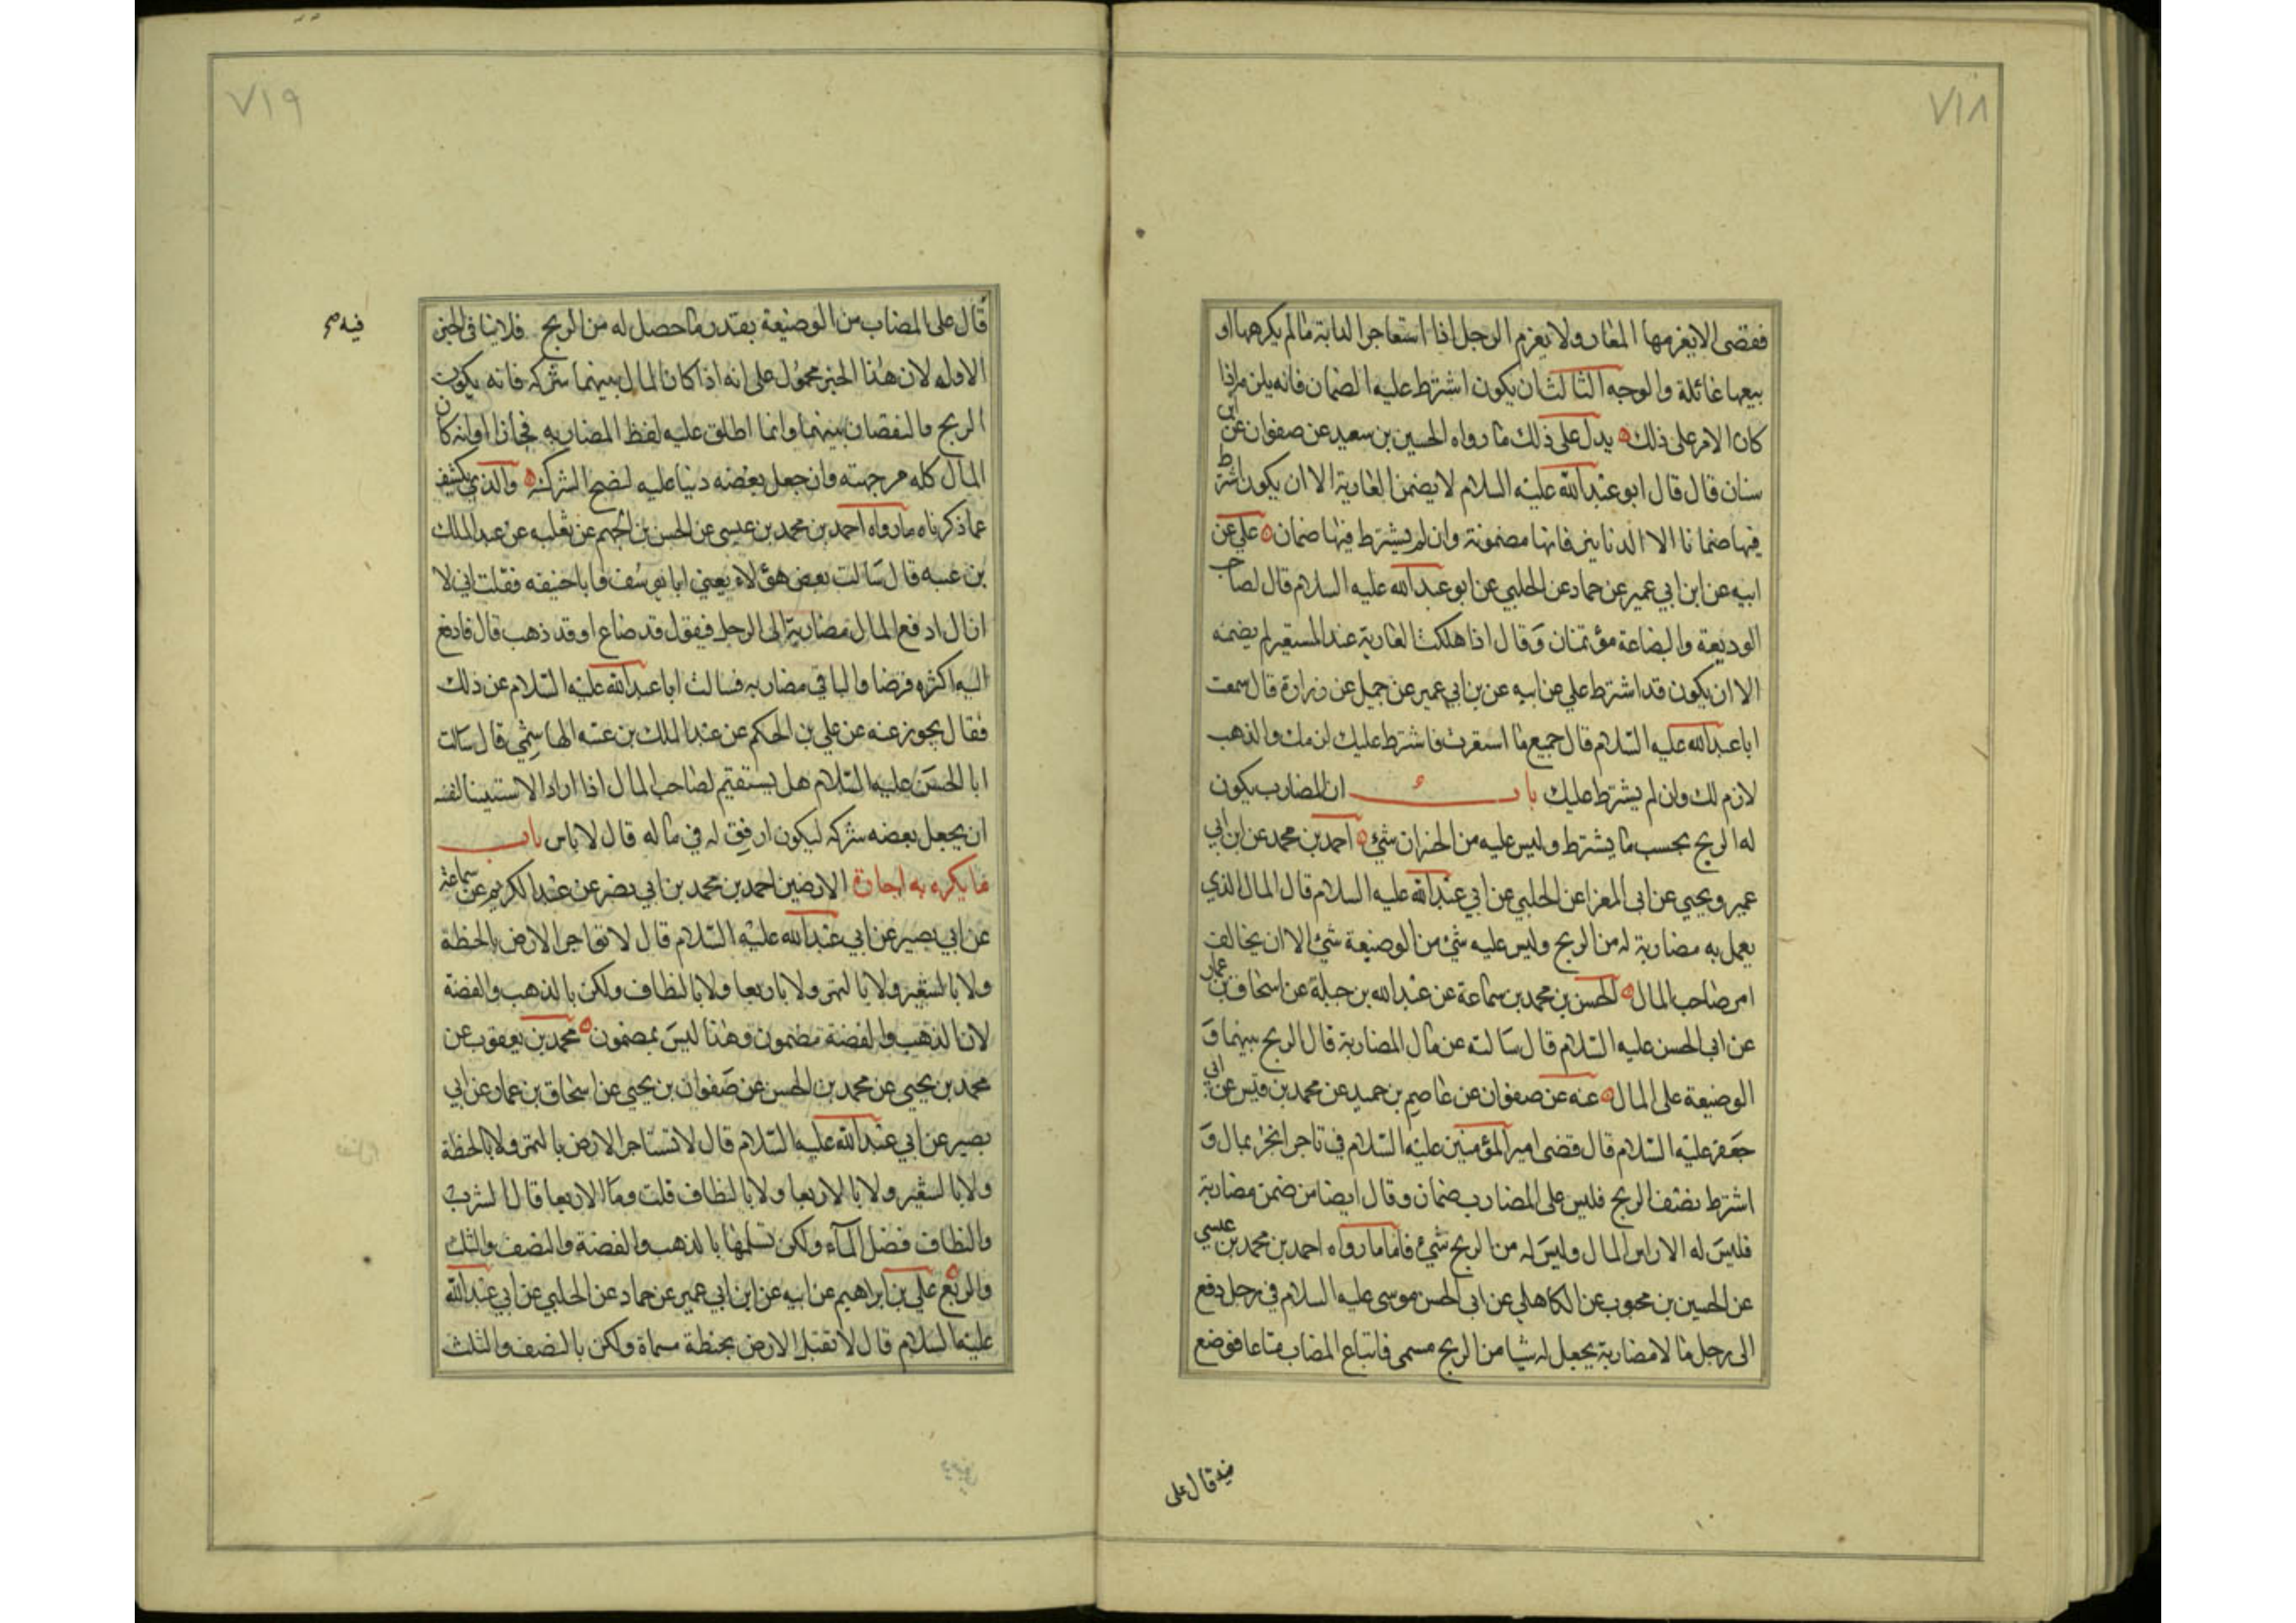 ٧١٨
فقضى الا يغرمها المعار ولا يغرم الرجل اذا استعاجر الدابة ما لم يكرهها او
يبعها غائلة والوجه الثالث ان يكون اشترط عليه الضمان فانه يلزم اذا
كان الامر على ذلك يدل على ذلك ما رواه الحسين بن سعيد عن صفوان عن ابن
سنان قال قال ابو عبد الله عليه السلام لا يضمن العارية الا ان يكون اشترط
فيها ضمانا الا الدنانير فانها مضمونة وان لم يشترط فيها ضمان علي عن
ابيه عن ابن ابي عمير عن حماد عن الحلبي عن ابو عبد الله عليه السلام قال لصاحب
الوديعة والبضاعة مؤتمنان وقال اذا هلكت العارية عند المستعير لم يضمنه
الا ان يكون قد اشترط علي عن ابيه عن بن ابي عمير عن جميل عن زرارة قال سمعت
ابا عبد الله عليه السلام قال جميع ما استعرت فاشترط عليك لزمك والذهب
لازم لك وان لم يشترط عليك باب ان المضارب يكون
له الربح بحسب ما يشترط وليس عليه من الخسران شئ احمد بن محمد عن ابن ابي
عمير ويحيى عن ابي المعزا عن الحلبي عن ابي عبد الله عليه السلام قال المال الذي
يعمل به مضاربة له من الربح وليس عليه شئ من الوضيعة شئ الا ان يخالف
امر صاحب المال الحسن بن محمد بن سماعة عن عبد الله بن جبلة عن اسحاق بن عمار
عن ابي الحسن عليه السلام قال سالته عن مال المضاربة قال الربح بينهما و
الوضيعة على المال عنه عن صفوان عن عاصم بن حميد عن محمد بن قيس عن ابي
جعفر عليه السلام قال قضى امير المؤمنين عليه السلام في تاجر اتجر بمال و
اشترط نصف الربح فليس على المضارب ضمان وقال ايضا من ضمن مضاربة
فليس له الا راس المال وليس له من الربح شئ فاما ما رواه احمد بن محمد بن عيسى
عن الحسين بن محبوب عن الكاهلي عن ابي الحسن موسى عليه السلام في رجل دفع
الى رجل مالا مضاربة يجعل له شيا من الربح مسمى فابتاع المضاب متاعا فوضع
فيه قال على
٧١٩
قال على المضاب من الوضيعة بقدر ما حصل له من الربح فلا ينافى الخبر
فيه صح
الاوله لان هذا الخبر محمول على انه اذا كان المال بينهما شركه فانه يكون
الربح والنقصان بينهما وانما اطلق عليه لفظ المضاربه مجازا او انه كان
المال كله من جهته وان جعل بعضه دينا عليه لتصح الشركه والذي يكشف
عما ذكرناه ما رواه احمد بن محمد بن عيسى عن الحسن بن الجهم عن ثعلبه عن عبد الملك
بن عتبه قال سالت بعض هؤلاء يعني ابا يوسف وابا حنيفه فقلت اني لا
ازال ادفع المال مضاربة الى الرجل فيقول قد ضاع او قد ذهب قال فادفع
اليه اكثره قرضا والباقي مضاربه فسالت ابا عبد الله عليه السلام عن ذلك
فقال يجوز عنه عن علي بن الحكم عن عبد الملك بن عتبه الهاشمي قال سالت
ابا الحسن عليه السلام هل يستقيم لصاحب المال اذا اراد الاستيثاق لنفسه
ان يجعل بعضه شركه ليكون اوفق له في ماله قال لا باس باب
ما يكره به اجارة الارضين احمد بن محمد بن ابي نصر عن عبد الكريم عن سماعة
عن ابي بصير عن ابي عبد الله عليه السلام قال لا تؤاجر الارض بالحنطة
ولا بالشعير ولا بالتمر ولا باربعا ولا بالنطاف ولكن بالذهب والفضة
لان الذهب والفضة مضمون وهذا ليس بمضمون محمد بن يعقوب عن
محمد بن يحيى عن محمد بن الحسن عن صفوان بن يحيى عن اسحاق بن عمار عن ابي
بصير عن ابي عبد الله عليه السلام قال لا تستاجر الارض بالتمر ولا بالحنطة
ولا بالشعير ولا بالاربعا ولا بالنطاف قلت وما الاربعا قال الشرب
والنطاف فضل المآء ولكن تسلمها بالذهب والفضة والنصف والثلث
والربع علي بن ابراهيم عن ابيه عن ابن ابي عمير عن حماد عن الحلبي عن ابي عبد الله
عليه السلام قال لا تقبل الارض بحنطة مسماة ولكن بالنصف والثلث